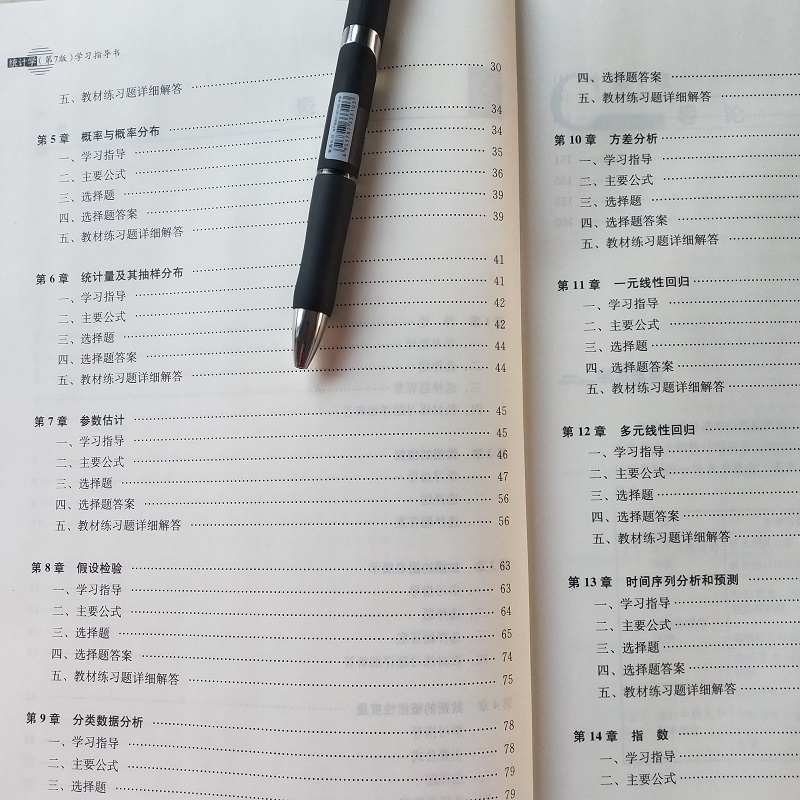 统计学(第7版)学习指导书
五、教材练习题详细解答 …… 30
第5章 概率与概率分布 …… 34
一、学习指导 …… 34
二、主要公式 …… 35
三、选择题 …… 36
四、选择题答案 …… 39
五、教材练习题详细解答 …… 39
第6章 统计量及其抽样分布 …… 41
一、学习指导 …… 41
二、主要公式 …… 42
三、选择题 …… 42
四、选择题答案 …… 44
五、教材练习题详细解答 …… 44
第7章 参数估计 …… 45
一、学习指导 …… 45
二、主要公式 …… 46
三、选择题 …… 47
四、选择题答案 …… 56
五、教材练习题详细解答 …… 56
第8章 假设检验 …… 63
一、学习指导 …… 63
二、主要公式 …… 64
三、选择题 …… 65
四、选择题答案 …… 74
五、教材练习题详细解答 …… 75
第9章 分类数据分析 …… 78
一、学习指导 …… 78
二、主要公式 …… 79
三、选择题 …… 79
四、选择题答案 ……
五、教材练习题详细解答 ……
第10章 方差分析 ……
一、学习指导 ……
二、主要公式 ……
三、选择题 ……
四、选择题答案 ……
五、教材练习题详细解答 ……
第11章 一元线性回归 ……
一、学习指导 ……
二、主要公式 ……
三、选择题 ……
四、选择题答案 ……
五、教材练习题详细解答 ……
第12章 多元线性回归 ……
一、学习指导 ……
二、主要公式 ……
三、选择题 ……
四、选择题答案 ……
五、教材练习题详细解答 ……
第13章 时间序列分析和预测 ……
一、学习指导 ……
二、主要公式 ……
三、选择题 ……
四、选择题答案 ……
五、教材练习题详细解答 ……
第14章 指 数 ……
一、学习指导 ……
二、主要公式 ……